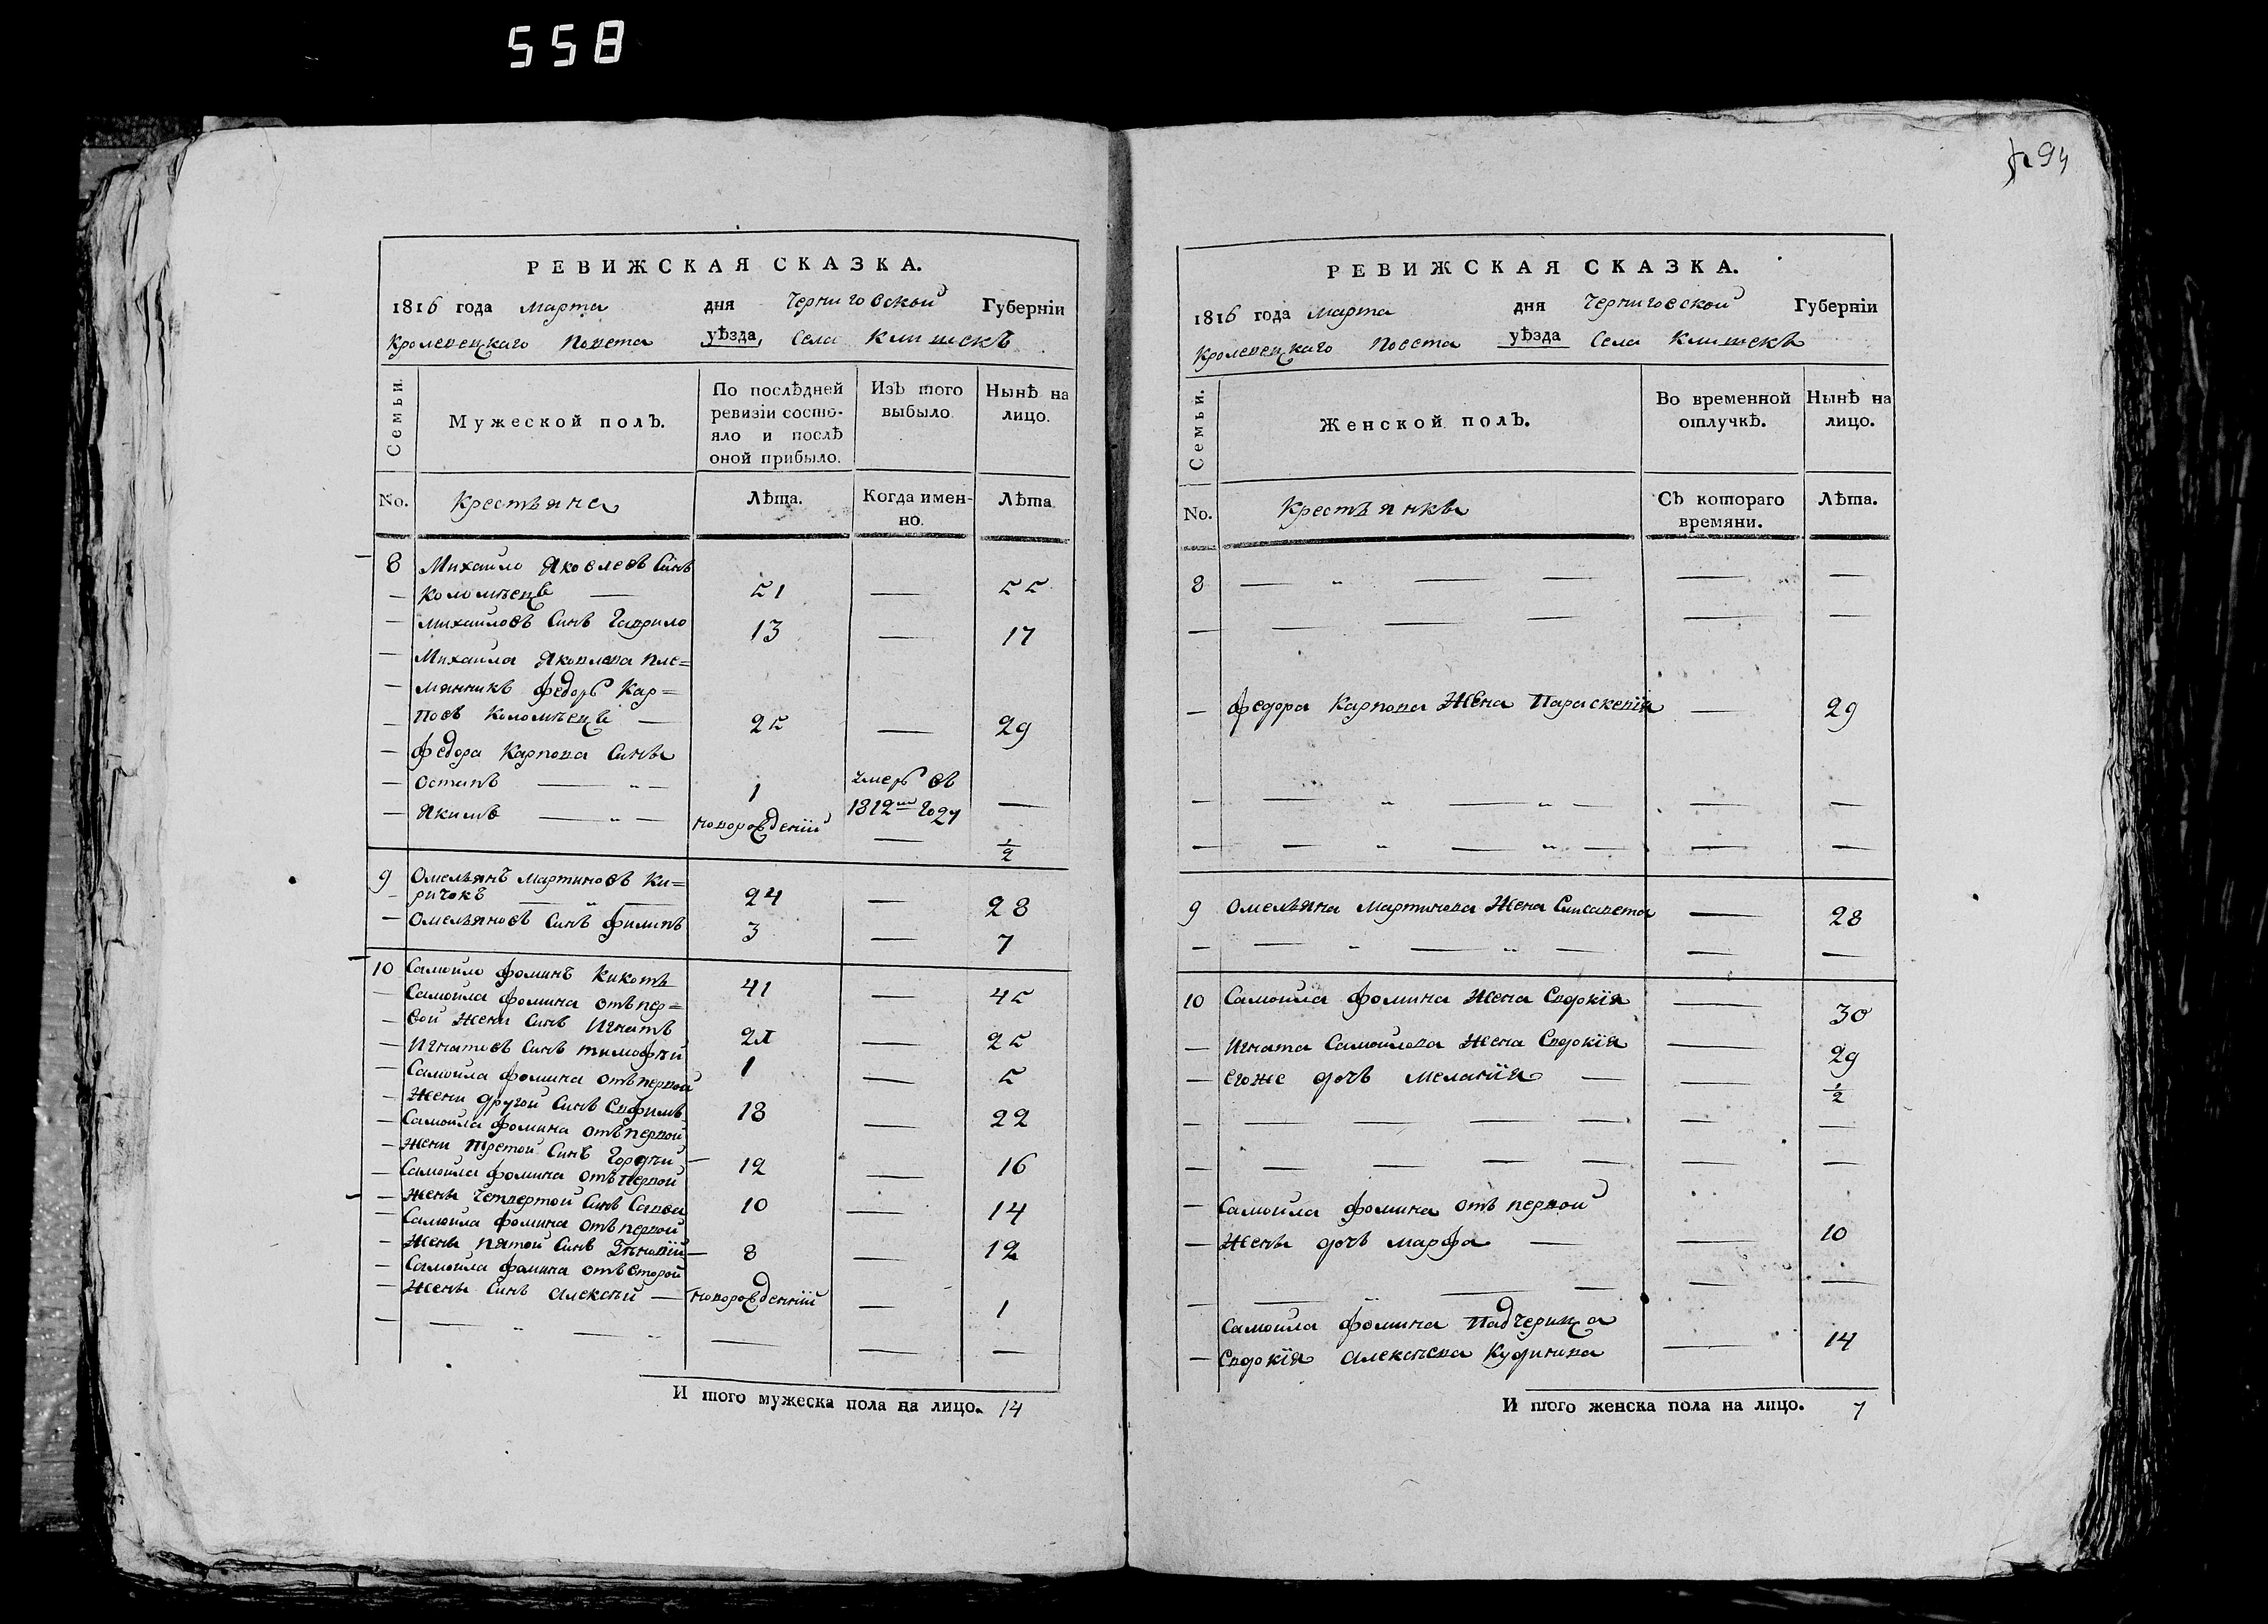 558
РЕВИЖСКАЯ СКАЗКА.
1816 года марта дня Черниговской Губерніи
Кролевецкаго Повета уѣзда, Села Клишекъ
Семьи. Мужеской полъ. По послѣдней ревизіи состояло и послѣ оной прибыло. Изъ того выбыло. Нынѣ на лицо.
No. Крестьяне Лѣта. Когда именно. Лѣта
8 Михайло Яковлевъ Синъ
— Коломѣецъ — 51 — 55
— Михайловъ Синъ Гаврило 13 — 17
— Михайла Яковлева пле=
— мянникъ Федоръ Кар=
— повъ Коломѣецъ — 25 — 29
— Федора Карпова Сины
— Остапъ — „ — 1 умеръ въ 1812м году —
— Якимъ — „ — новорожденій — ½
9 Омельянъ Мартиновъ Ки=
— ричокъ — „ — 24 — 28
— Омельяновъ Синъ Филипъ 3 — 7
10 Самойло Фоминъ Кикоть 41 — 45
— Самойла Фомина отъ пер=
— вой Жени Синъ Игнатъ 21 — 25
— Игнатовъ Синъ Тимофѣй 1 — 5
— Самойла Фомина отъ первой
— Жени другой Синъ Евфимъ 18 — 22
— Самойла Фомина отъ первой
— Жени третой Синъ Гордѣй — 12 — 16
— Самойла Фомина отъ первой
— Жены Четвертой Синъ Савва 10 — 14
— Самойла Фомина отъ первой
— Жены пятой Синъ — 8 — 12
— Самойла Фомина отъ второй
— Жены Синъ Алексѣй — новорожденній — 1
— — „ — „ — — —
И того мужеска пола на лицо. 14
94
РЕВИЖСКАЯ СКАЗКА.
1816 года Марта дня Черниговской Губерніи
Кролевецкаго Повета уѣзда Села Клишекъ
Семьи. Женской полъ. Во временной отлучкѣ. Нынѣ на лицо.
No. Крестьянки Съ котораго времяни. Лѣта.
8 — „ — — — —
— — — — — —
— Федора Карпова Жена Параскевія — 29
— — „ — „ — — —
— — „ — „ — — —
9 Омельяна Мартинова Жена Елисавета — 28
— — „ — „ — — —
10 Самойла Фомина Жена Евдокія — 30
— Игната Самойлова Жена Евдокія — 29
— егоже дочь Меланія — — ½
— — — — — — —
— — — — — — —
— Самойла Фомина отъ первой
— Жены дочь Марфа — — 10
— — „ — — — —
Самойла Фомина Падчерица
— Евдокія Алексѣева Кудинова — 14
И того женска пола на лицо. 7